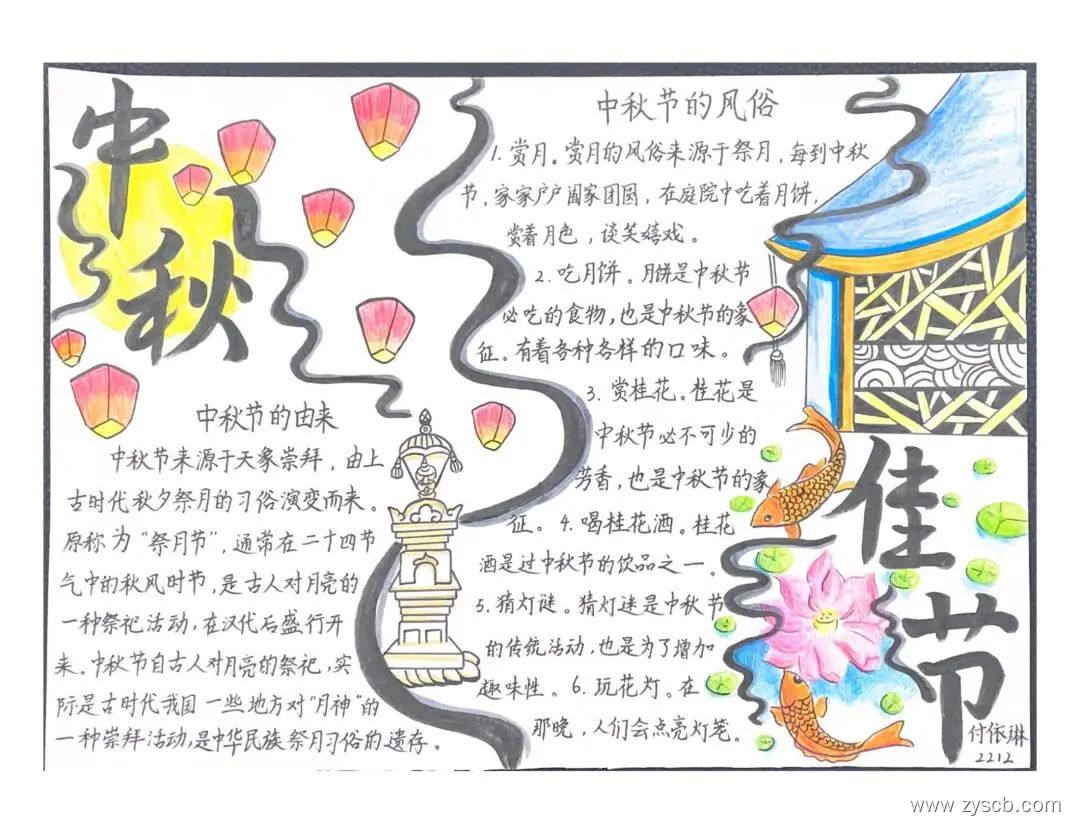 中
秋
中秋节的由来
中秋节来源于天象崇拜，由上
古时代秋夕祭月的习俗演变而来。
原称为“祭月节”，通常在二十四节
气中的秋风时节，是古人对月亮的
一种祭祀活动，在汉代后盛行开
来。中秋节自古人对月亮的祭祀，实
际是古时代我国一些地方对“月神”的
一种崇拜活动，是中华民族祭月习俗的遗存。
中秋节的风俗
1. 赏月。赏月的风俗来源于祭月，每到中秋
节，家家户户阖家团圆，在庭院中吃着月饼，
赏着月色，谈笑嬉戏。
2. 吃月饼。月饼是中秋节
必吃的食物，也是中秋节的象
征。有着各种各样的口味。
3. 赏桂花。桂花是
中秋节必不可少的
芳香，也是中秋节的象
征。4. 喝桂花酒。桂花
酒是过中秋节的饮品之一。
5. 猜灯谜。猜灯谜是中秋节
的传统活动，也是为了增加
趣味性。6. 玩花灯。在
那晚，人们会点亮灯笼。
佳
节
付依琳
2212
www.zyscb.com